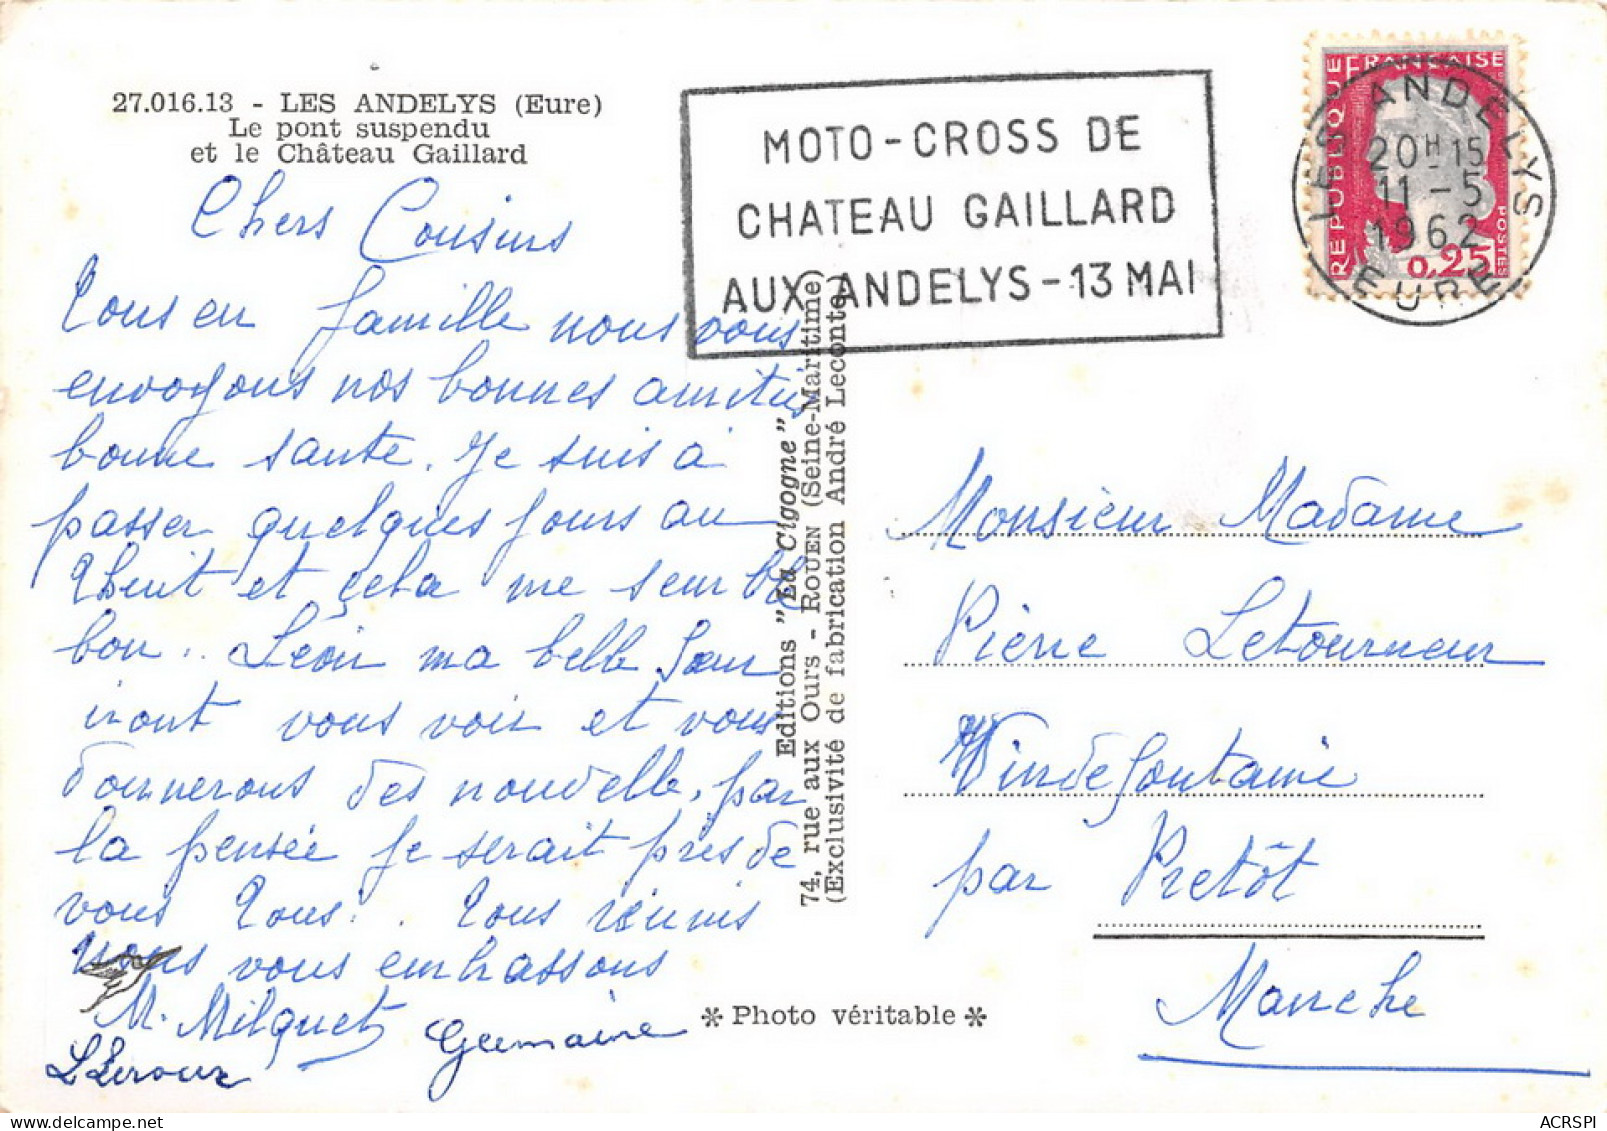 27.016.13 - LES ANDELYS (Eure)
Le pont suspendu
et le Château Gaillard
Chers Cousins
Tous en famille nous vous
envoyons nos bonnes amitiés
bonne santé. Je suis à
passer quelques jours au
Thuit et cela me semble
bon.. Léon ma belle Sœur
iront vous voir et vous
donnerons des nouvelle, par
la pensée je serait près de
vous Tous. . Tous réunis
nous vous embrassons
M. Milquet Germaine
L Leroux
Editions "La Cigogne"
74, rue aux Ours - ROUEN (Seine-Maritime)
(Exclusivité de fabrication André Leconte)
✻ Photo véritable ✻
MOTO-CROSS DE
CHATEAU GAILLARD
AUX ANDELYS - 13 MAI
REPUBLIQUE FRANÇAISE
POSTES
0,25
LES ANDELYS
20H-15
11 - 5
1962
EURE
Monsieur Madame
Pierre Letourneur
Vindefontaine
par Pretôt
Manche
ACRSPI